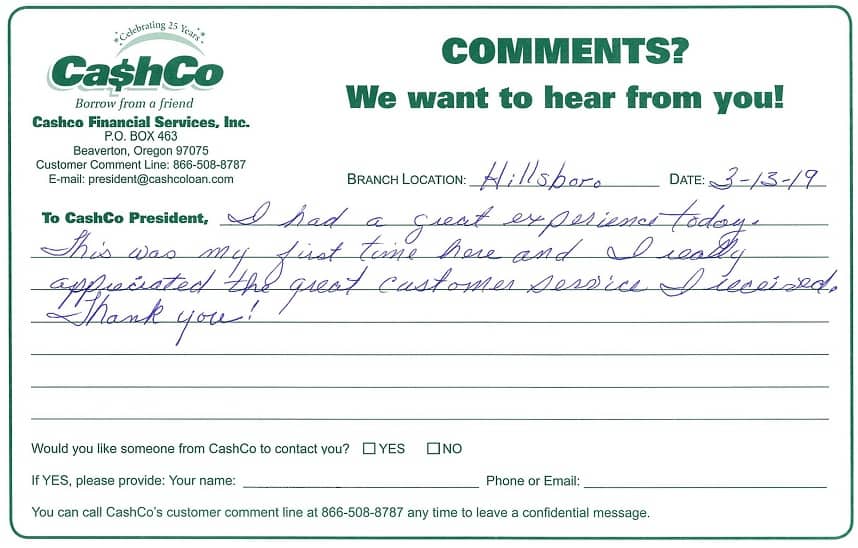 Celebrating 25 Years
Ca$hCo
Borrow from a friend
Cashco Financial Services, Inc.
P.O. BOX 463
Beaverton, Oregon 97075
Customer Comment Line: 866-508-8787
E-mail: president@cashcoloan.com
COMMENTS?
We want to hear from you!
BRANCH LOCATION: Hillsboro DATE: 3-13-19
To CashCo President, I had a great experience today.
This was my first time here and I really
appreciated the great customer service I received.
Thank you!
Would you like someone from CashCo to contact you? YES NO
If YES, please provide: Your name: Phone or Email:
You can call CashCo's customer comment line at 866-508-8787 any time to leave a confidential message.